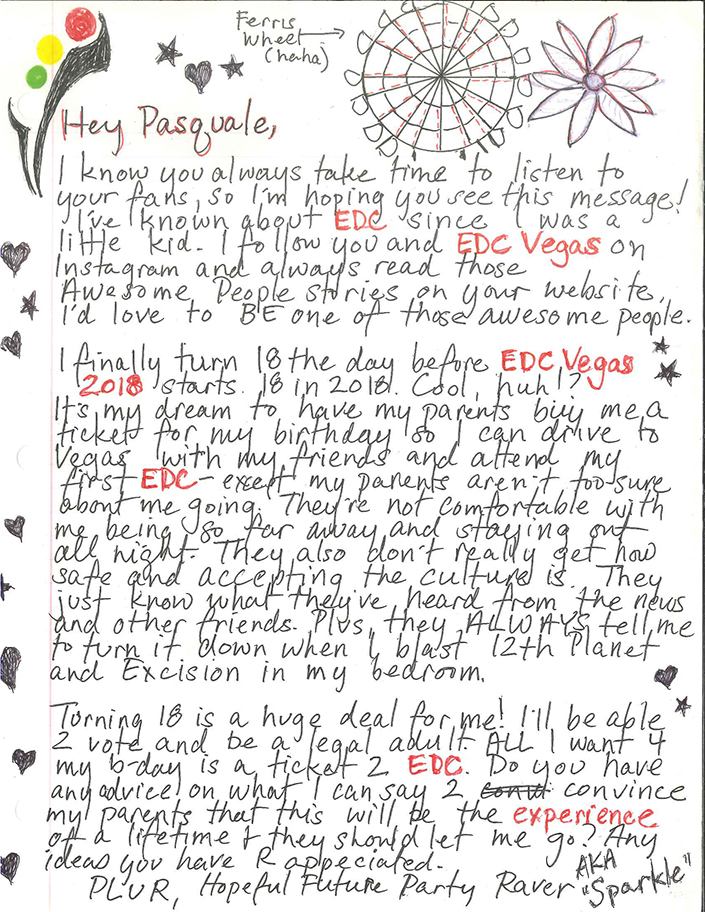 Ferris
Wheel
(haha)
Hey Pasquale,
I know you always take time to listen to
your fans, so I'm hoping you see this message!
I've known about EDC since I was a
little kid. I follow you and EDC Vegas on
Instagram and always read those
Awesome People stories on your website.
I'd love to BE one of those awesome people.
I finally turn 18 the day before EDC Vegas
2018 starts. 18 in 2018. Cool, huh!?
It's my dream to have my parents buy me a
ticket for my birthday so I can drive to
Vegas with my friends and attend my
first EDC - except my parents aren't too sure
about me going. They're not comfortable with
me being so far away and staying out
all night. They also don't really get how
safe and accepting the culture is. They
just know what they've heard from the news
and other friends. Plus, they ALWAYS tell me
to turn it down when I blast 12th Planet
and Excision in my bedroom.
Turning 18 is a huge deal for me! I'll be able
2 vote and be a legal adult. ALL I want 4
my b-day is a ticket 2 EDC. Do you have
any advice on what I can say 2 convince
my parents that this will be the experience
of a lifetime & they should let me go? Any
ideas you have R appeciated.
PLUR, Hopeful Future Party Raver AKA "Sparkle"